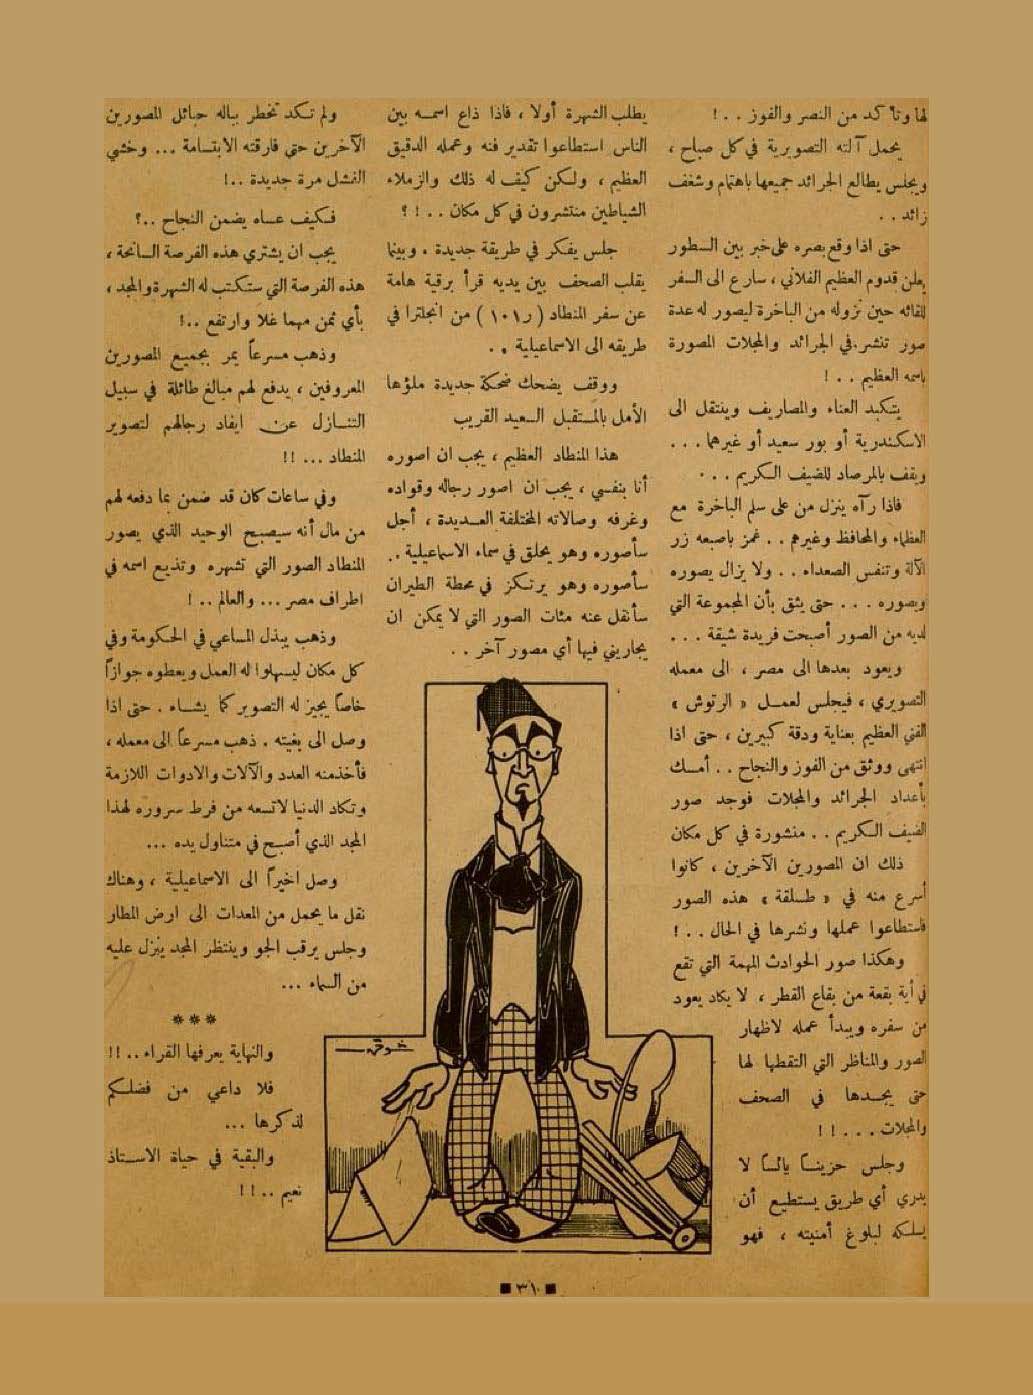 لها وتأكد من النصر والفوز . . !
يحمل آلته التصويرية في كل صباح ،
ويجلس يطالع الجرائد جميعها باهتمام وشغف
زائد . .
حتى اذا وقع بصره على خبر بين السطور
يعلن قدوم العظيم الفلاني ، سارع الى السفر
للقائه حين نزوله من الباخرة ليصور له عدة
صور تنشر في الجرائد والمجلات المصورة
باسمه العظيم . . !
يتكبد العناء والمصاريف وينتقل الى
الاسكندرية أو بور سعيد أو غيرهما . . .
ويقف بالمرصاد للضيف الكريم . . .
فاذا رآه ينزل من على سلم الباخرة مع
العظماء والمحافظ وغيرهم . . غمز باصبعه زر
الآلة وتنفس الصعداء . . ولا يزال يصوره
ويصوره . . . حتى يثق بأن المجموعة التي
لديه من الصور أصبحت فريدة شيقة . . .
ويعود بعدها الى مصر ، الى معمله
التصويري ، فيجلس لعمل « الرتوش »
الفني العظيم بعناية ودقة كبيرين ، حتى اذا
انتهى ووثق من الفوز والنجاح . . أمسك
بأعداد الجرائد والمجلات فوجد صور
الضيف الكريم . . منشورة في كل مكان
ذلك ان المصورين الآخرين ، كانوا
أسرع منه في « طسلقة » هذه الصور
فاستطاعوا عملها ونشرها في الحال . . !
وهكذا صور الحوادث المهمة التي تقع
في أية بقعة من بقاع القطر ، لا يكاد يعود
من سفره ويبدأ عمله لاظهار
الصور والمناظر التي التقطها لها
حتى يجدها في الصحف
والمجلات . . . . ! !
وجلس حزيناً يائساً لا
يدري أي طريق يستطيع أن
يسلكه لبلوغ أمنيته ، فهو
يطلب الشهرة أولا ، فاذا ذاع اسمه بين
الناس استطاعوا تقدير فنه وعمله الدقيق
العظيم ، ولكن كيف له ذلك والزملاء
الشياطين منتشرون في كل مكان . . ! ؟
جلس يفكر في طريقة جديدة . وبينما
يقلب الصحف بين يديه قرأ برقية هامة
عن سفر المنطاد ( ر١٠١ ) من انجلترا في
طريقه الى الاسماعيلية . .
ووقف يضحك ضحكة جديدة ملؤها
الأمل بالمستقبل السعيد القريب
هذا المنطاد العظيم ، يجب ان اصوره
أنا بنفسي ، يجب ان اصور رجاله وقواده
وغرفه وصالاته المختلفة العديدة ، أجل
سأصوره وهو يحلق في سماء الاسماعيلية . .
سأصوره وهو يرتكز في محطة الطيران
سأنقل عنه مئات الصور التي لا يمكن ان
يجاريني فيها أي مصور آخر . .
شوقي
ولم تكد تخطر بباله حبائل المصورين
الآخرين حتى فارقته الابتسامة ... وخشي
الفشل مرة جديدة ..!
فكيف عساه يضمن النجاح ..؟
يجب ان يشتري هذه الفرصة السانحة ،
هذه الفرصة التي ستكتب له الشهرة والمجد ،
بأي ثمن مهما غلا وارتفع ..!
وذهب مسرعاً يمر بجميع المصورين
المعروفين ، يدفع لهم مبالغ طائلة في سبيل
التنازل عن ايفاد رجالهم لتصوير
المنطاد ... !!
وفي ساعات كان قد ضمن بما دفعه لهم
من مال أنه سيصبح الوحيد الذي يصور
المنطاد الصور التي تشهره وتذيع اسمه في
اطراف مصر ... والعالم ..!
وذهب يبذل المساعي في الحكومة وفي
كل مكان ليسهلوا له العمل ويعطوه جوازاً
خاصاً يجيز له التصوير كما يشاء . حتى اذا
وصل الى بغيته . ذهب مسرعاً الى معمله ،
فأخذ منه العدد والآلات والادوات اللازمة
وتكاد الدنيا لاتسعه من فرط سروره لهذا
المجد الذي أصبح في متناول يده ...
وصل اخيراً الى الاسماعيلية ، وهناك
نقل ما يحمل من المعدات الى ارض المطار
وجلس يرقب الجو وينتظر المجد ينزل عليه
من السماء ...
***
والنهاية يعرفها القراء .. !!
فلا داعي من فضلكم
لذكرها ...
والبقية في حياة الاستاذ
نعيم .. !!
٣١